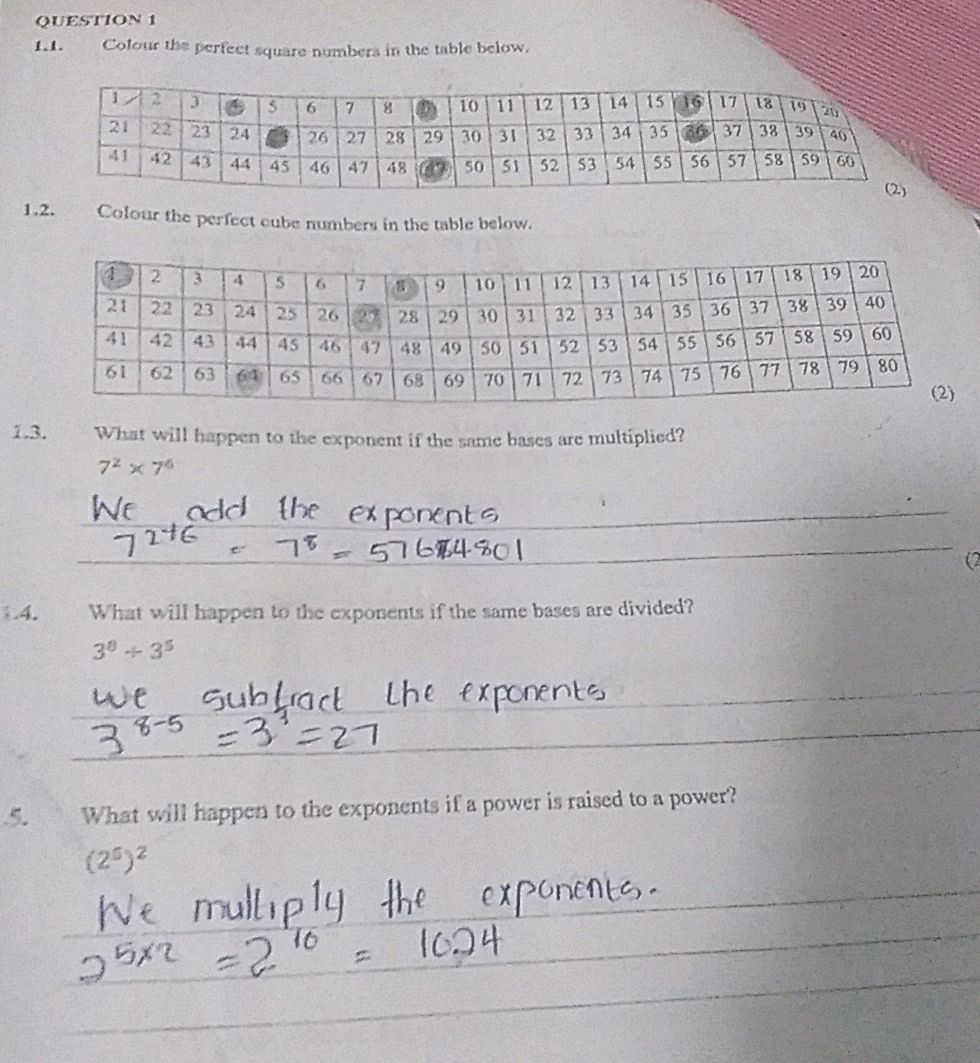 QUESTION 1
1.1. Colour the perfect square numbers in the table below.
1 2 3 4 5 6 7 8 9 10 11 12 13 14 15 16 17 18 19 20
21 22 23 24 26 27 28 29 30 31 32 33 34 35 36 37 38 39 40
41 42 43 44 45 46 47 48 49 50 51 52 53 54 55 56 57 58 59 60
(2)
1.2. Colour the perfect cube numbers in the table below.
1 2 3 4 5 6 7 8 9 10 11 12 13 14 15 16 17 18 19 20
21 22 23 24 25 26 27 28 29 30 31 32 33 34 35 36 37 38 39 40
41 42 43 44 45 46 47 48 49 50 51 52 53 54 55 56 57 58 59 60
61 62 63 64 65 66 67 68 69 70 71 72 73 74 75 76 77 78 79 80
(2)
1.3. What will happen to the exponent if the same bases are multiplied?
7² × 7⁶
We add the exponents
7²⁺⁶ = 7⁸ = 5764801
(2
1.4. What will happen to the exponents if the same bases are divided?
3⁸ ÷ 3⁵
We subtract the exponents
3⁸⁻⁵ = 3³ = 27
5. What will happen to the exponents if a power is raised to a power?
(2⁵)²
We multiply the exponents.
2⁵ˣ² = 2¹⁰ = 1024